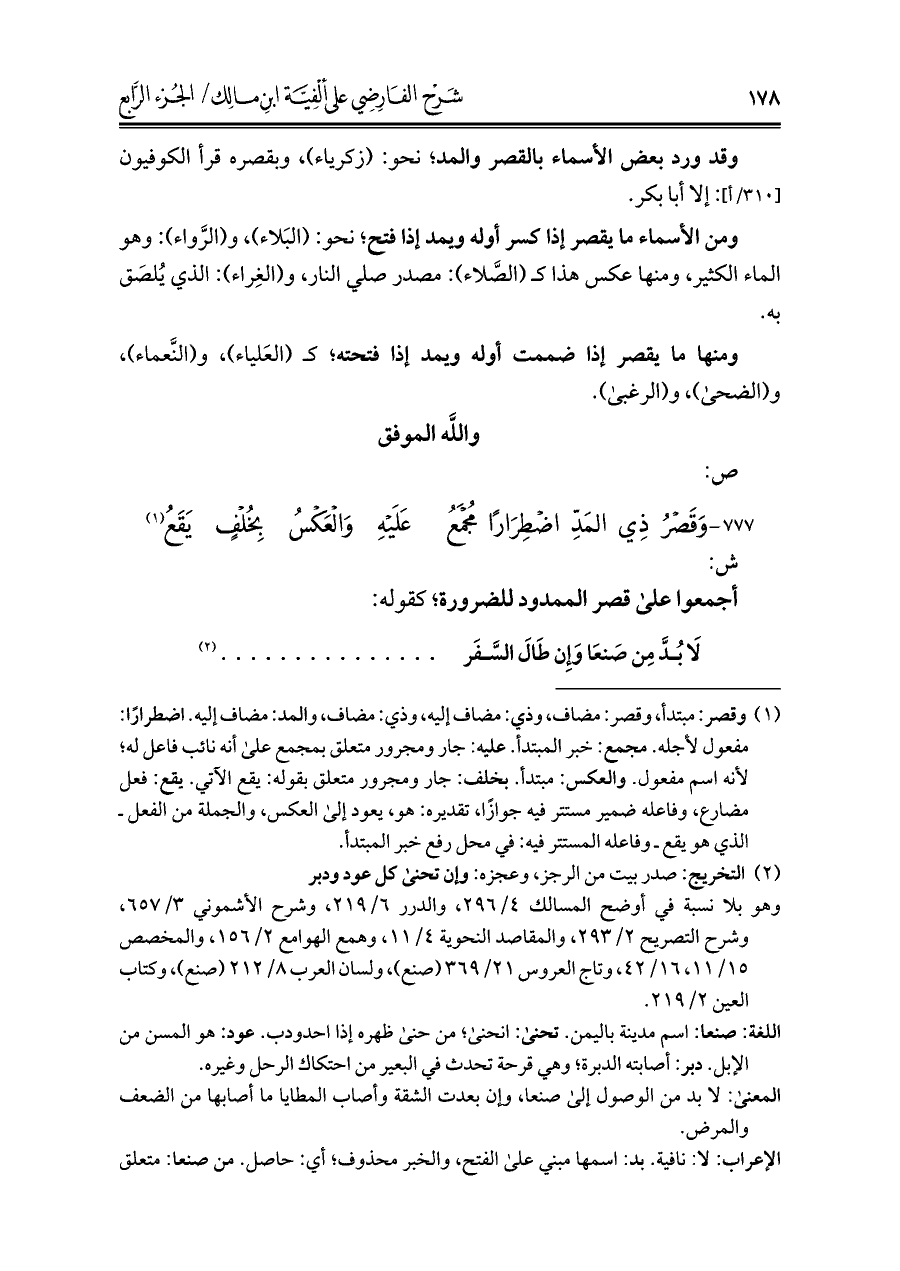 ١٧٨ شَرْح الفَارِضِي عَلى أَلْفِيَّة ابنِ مَالِك/ الجُزء الرَّابع
وقد ورد بعض الأسماء بالقصر والمد؛ نحو: (زكرياء)، وبقصره قرأ الكوفيون
[٣١٠/أ]: إلا أبا بكر.
ومن الأسماء ما يقصر إذا كسر أوله ويمد إذا فتح؛ نحو: (البَلاء)، و(الرَّواء): وهو
الماء الكثير، ومنها عكس هذا كـ (الصَّلاء): مصدر صلي النار، و(الغِراء): الذي يُلصَق
به.
ومنها ما يقصر إذا ضممت أوله ويمد إذا فتحته؛ كـ (العَلياء)، و(النَّعماء)،
و(الضحىٰ)، و(الرغبىٰ).
واللَّه الموفق
ص:
٧٧٧-وَقَصْرُ ذِي المَدِّ اضْطِرَارًا مُجْمَعُ عَلَيْهِ وَالْعَكْسُ بِخُلْفٍ يَقَعُ(١)
ش:
أجمعوا علىٰ قصر الممدود للضرورة؛ كقوله:
لَا بُـدَّ مِن صَنعَا وَإِن طَالَ السَّـفَر . . . . . . . . . . . . . . .(٢)
(١) وقصر: مبتدأ، وقصر: مضاف، وذي: مضاف إليه، وذي: مضاف، والمد: مضاف إليه. اضطرارًا:
مفعول لأجله. مجمع: خبر المبتدأ. عليه: جار ومجرور متعلق بمجمع علىٰ أنه نائب فاعل له؛
لأنه اسم مفعول. والعكس: مبتدأ. بخلف: جار ومجرور متعلق بقوله: يقع الآتي. يقع: فعل
مضارع، وفاعله ضمير مستتر فيه جوازًا، تقديره: هو، يعود إلىٰ العكس، والجملة من الفعل ـ
الذي هو يقع ـ وفاعله المستتر فيه: في محل رفع خبر المبتدأ.
(٢) التخريج: صدر بيت من الرجز، وعجزه: وإن تحنىٰ كل عود ودبر
وهو بلا نسبة في أوضح المسالك ٤/ ٢٩٦، والدرر ٦/ ٢١٩، وشرح الأشموني ٣/ ٦٥٧،
وشرح التصريح ٢/ ٢٩٣، والمقاصد النحوية ٤/ ١١، وهمع الهوامع ٢/ ١٥٦، والمخصص
١٥/ ١١، ١٦/ ٤٢، وتاج العروس ٢١/ ٣٦٩ (صنع)، ولسان العرب ٨/ ٢١٢ (صنع)، وكتاب
العين ٢/ ٢١٩.
اللغة: صنعا: اسم مدينة باليمن. تحنىٰ: انحنىٰ؛ من حنىٰ ظهره إذا احدودب. عود: هو المسن من
الإبل. دبر: أصابته الدبرة؛ وهي قرحة تحدث في البعير من احتكاك الرحل وغيره.
المعنىٰ: لا بد من الوصول إلىٰ صنعا، وإن بعدت الشقة وأصاب المطايا ما أصابها من الضعف
والمرض.
الإعراب: لا: نافية. بد: اسمها مبني علىٰ الفتح، والخبر محذوف؛ أي: حاصل. من صنعا: متعلق